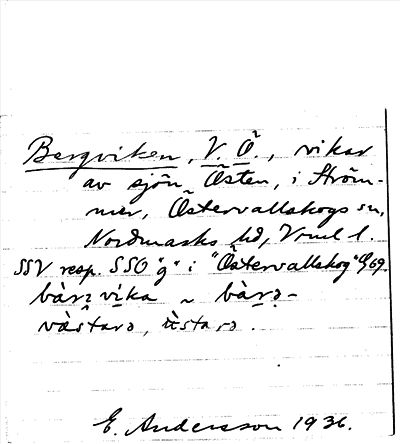 Bergviken, V. Ö., vikar
av sjön Östen, i Ström-
mer, Östervallskogs sn,
Nordmarks hd, Vrml l.
SSV resp. SSO "g" i "Östervallskog" 69.
bàrʒ vi̍ka ~ bàrʒ-
västarə, ùstarə.
E. Andersson 1936.